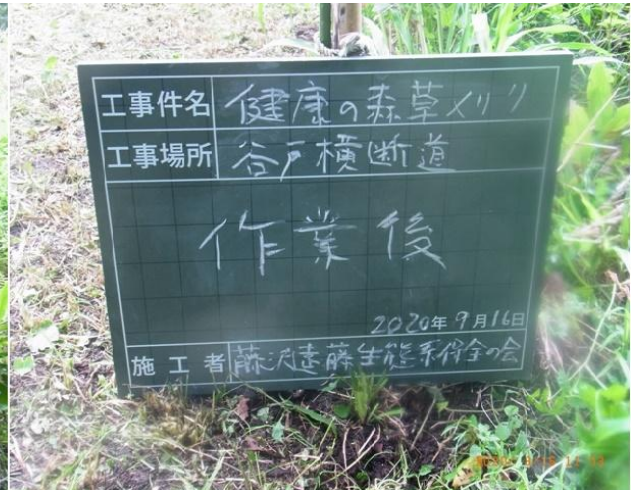 工事件名 健康の森草刈り
工事場所 谷戸横断道
作業後
2020年9月16日
施工者 藤沢遠藤生態系保全の会